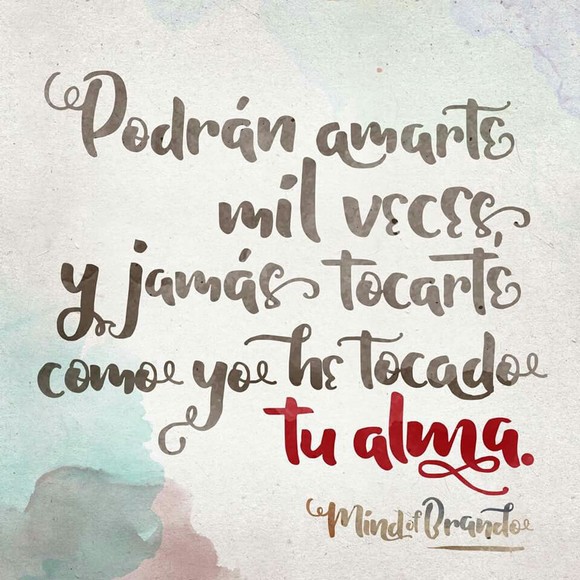 Podrán amarte
mil veces,
y jamás tocarte
como yo he tocado
tu alma.
Mind of Brando